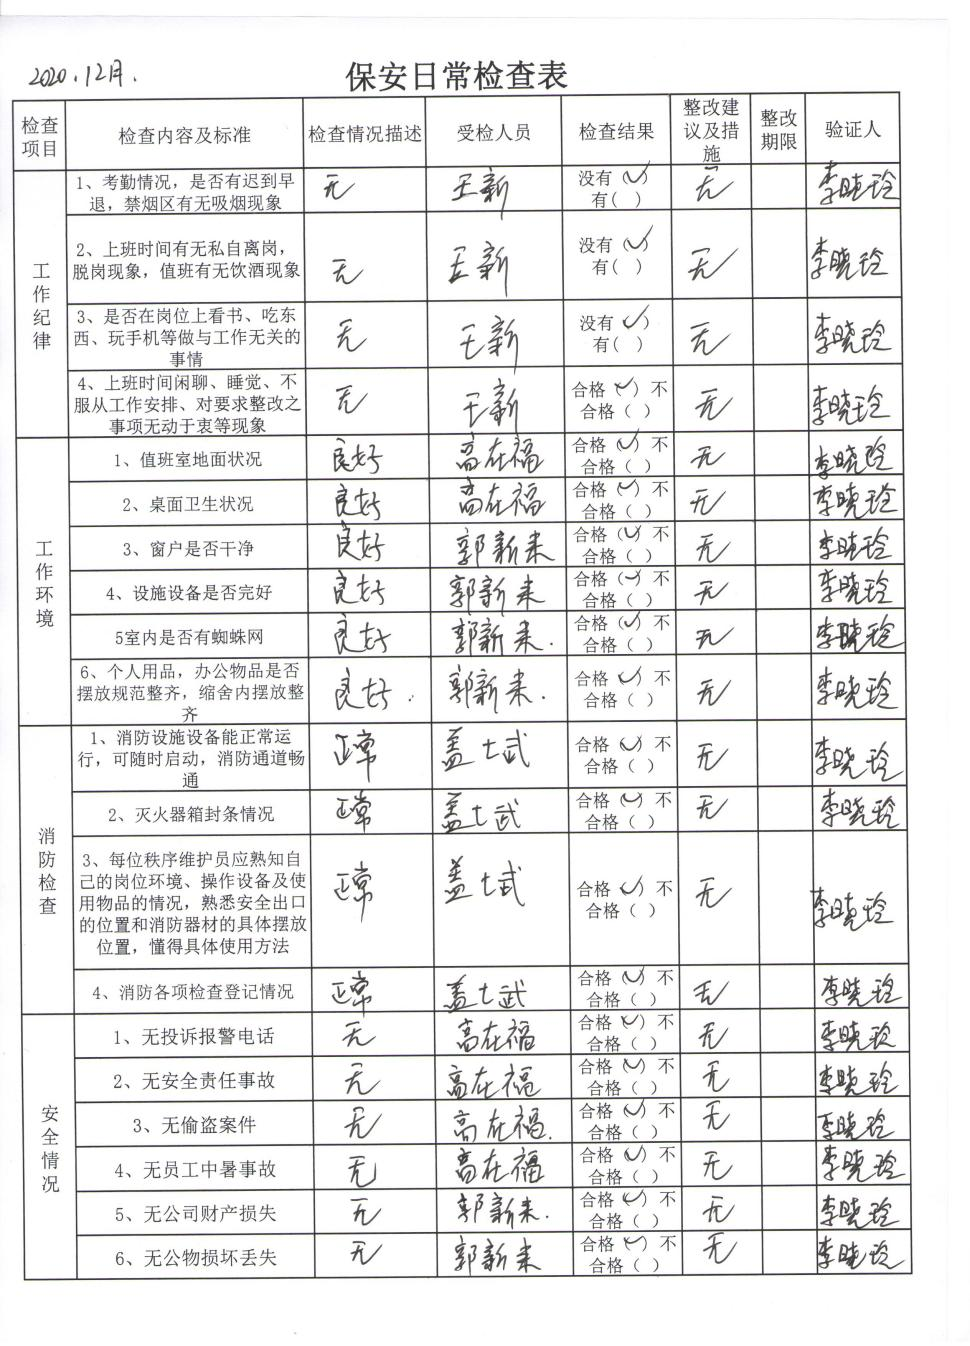 2020.12月.
保安日常检查表
检查项目 检查内容及标准 检查情况描述 受检人员 检查结果 整改建议及措施 整改期限 验证人
工作纪律
1、考勤情况，是否有迟到早退，禁烟区有无吸烟现象 无 王新 没有（✓）有( ) 无 李晓玲
2、上班时间有无私自离岗，脱岗现象，值班有无饮酒现象 无 王新 没有（✓）有( ) 无 李晓玲
3、是否在岗位上看书、吃东西、玩手机等做与工作无关的事情 无 王新 没有（✓）有( ) 无 李晓玲
4、上班时间闲聊、睡觉、不服从工作安排、对要求整改之事项无动于衷等现象 无 王新 合格（✓）不合格（ ） 无 李晓玲
工作环境
1、值班室地面状况 良好 高在福 合格（✓）不合格（ ） 无 李晓玲
2、桌面卫生状况 良好 高在福 合格（✓）不合格（ ） 无 李晓玲
3、窗户是否干净 良好 郭新来 合格（✓）不合格（ ） 无 李晓玲
4、设施设备是否完好 良好 郭新来 合格（✓）不合格（ ） 无 李晓玲
5室内是否有蜘蛛网 良好 郭新来. 合格（✓）不合格（ ） 无 李晓玲
6、个人用品，办公物品是否摆放规范整齐，缩舍内摆放整齐 良好. 郭新来. 合格（✓）不合格（ ） 无 李晓玲
消防检查
1、消防设施设备能正常运行，可随时启动，消防通道畅通 正常 盖士武 合格（✓）不合格（ ） 无 李晓玲
2、灭火器箱封条情况 正常 盖士武 合格（✓）不合格（ ） 无 李晓玲
3、每位秩序维护员应熟知自己的岗位环境、操作设备及使用物品的情况，熟悉安全出口的位置和消防器材的具体摆放位置，懂得具体使用方法 正常 盖士武 合格（✓）不合格（ ） 无 李晓玲
4、消防各项检查登记情况 正常 盖士武 合格（✓）不合格（ ） 无 李晓玲
安全情况
1、无投诉报警电话 无 高在福 合格（✓）不合格（ ） 无 李晓玲
2、无安全责任事故 无 高在福 合格（✓）不合格（ ） 无 李晓玲
3、无偷盗案件 无 高在福. 合格（✓）不合格（ ） 无 李晓玲
4、无员工中暑事故 无 高在福 合格（✓）不合格（ ） 无 李晓玲
5、无公司财产损失 无 郭新来. 合格（✓）不合格（ ） 无 李晓玲
6、无公物损坏丢失 无 郭新来 合格（✓）不合格（ ） 无 李晓玲